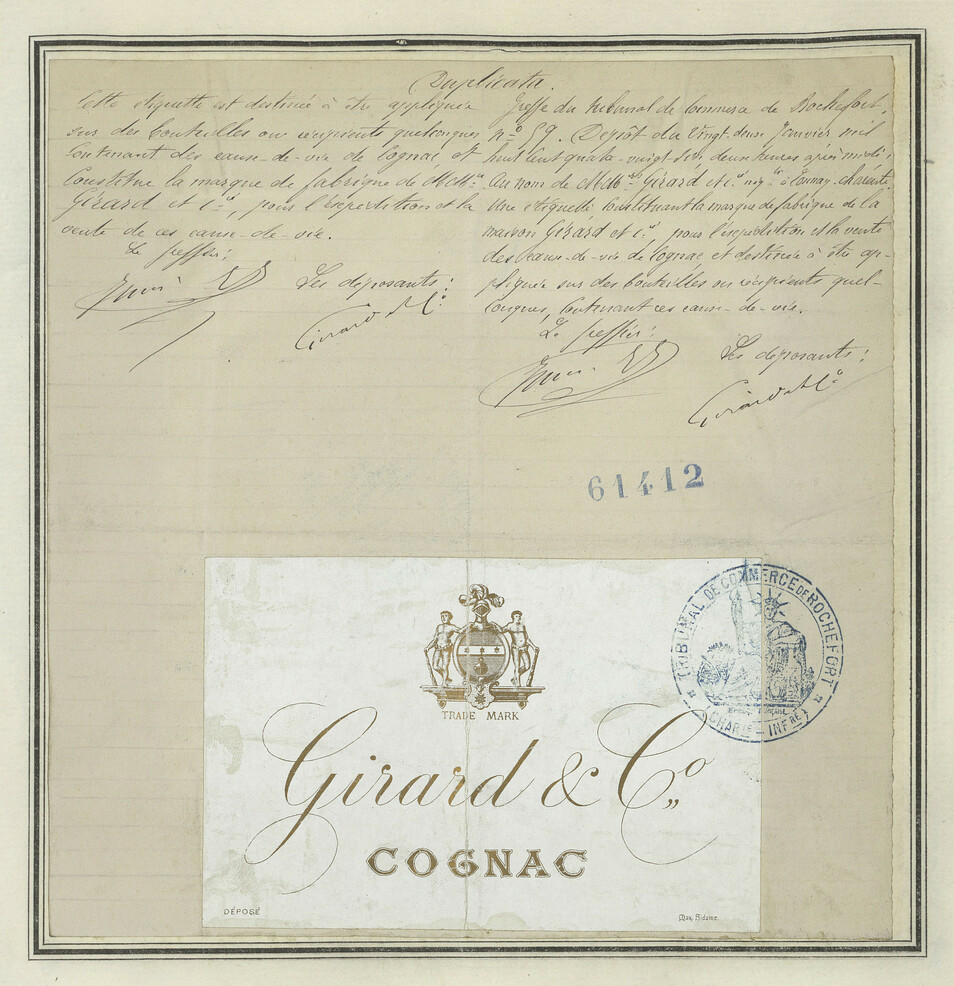 Duplicata.
Cette étiquette est destinée à être appliquée
sur des bouteilles ou récipients quelconques
contenant des eaux-de-vie de Cognac, et
constitue la marque de fabrique de MM.
Girard et Cie, pour l'expédition et la
vente de ces eaux-de-vie.
Le greffier:
Les déposants:
Girard & Co
Greffe du Tribunal de Commerce de Rochefort.
No 59. Dépôt du vingt-deux Janvier mil
huit cent quatre-vingt-dix, deux heures après midi;
Au nom de MM. Girard et Cie négts à Tonnay-Charente
Une étiquette constituant la marque de fabrique de la
maison Girard et Cie, pour l'expédition et la vente
des eaux-de-vie de Cognac et destinée à être ap-
pliquée sur des bouteilles ou récipients quel-
conques, contenant ces eaux-de-vie.
Le greffier:
Les déposants:
Girard & Co
61412
TRIBUNAL DE COMMERCE DE ROCHEFORT
(CHARTE-INFRE)
TRADE MARK
Girard & Co
COGNAC
DÉPOSÉ